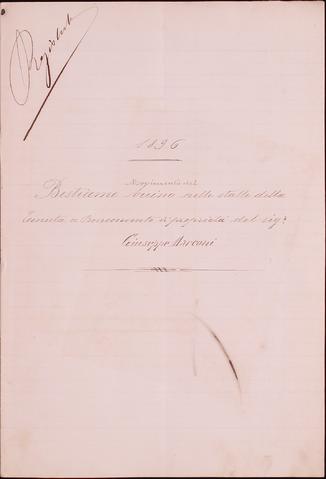 Registrato
1896
Movimento del
Bestiame bovino nelle stalle della
Tenuta a Benvenuto di proprietà del sigr
Giuseppe Marconi